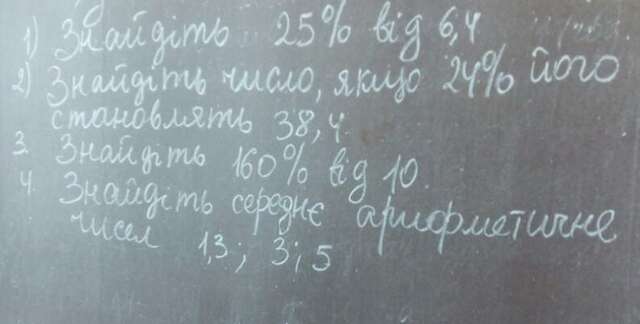 1) Знайдіть 25% від 6,4
2) Знайдіть число, якщо 24% його
становлять 38,4.
3. Знайдіть 160% від 10
4. Знайдіть середнє арифметичне
чисел 1,3; 3; 5